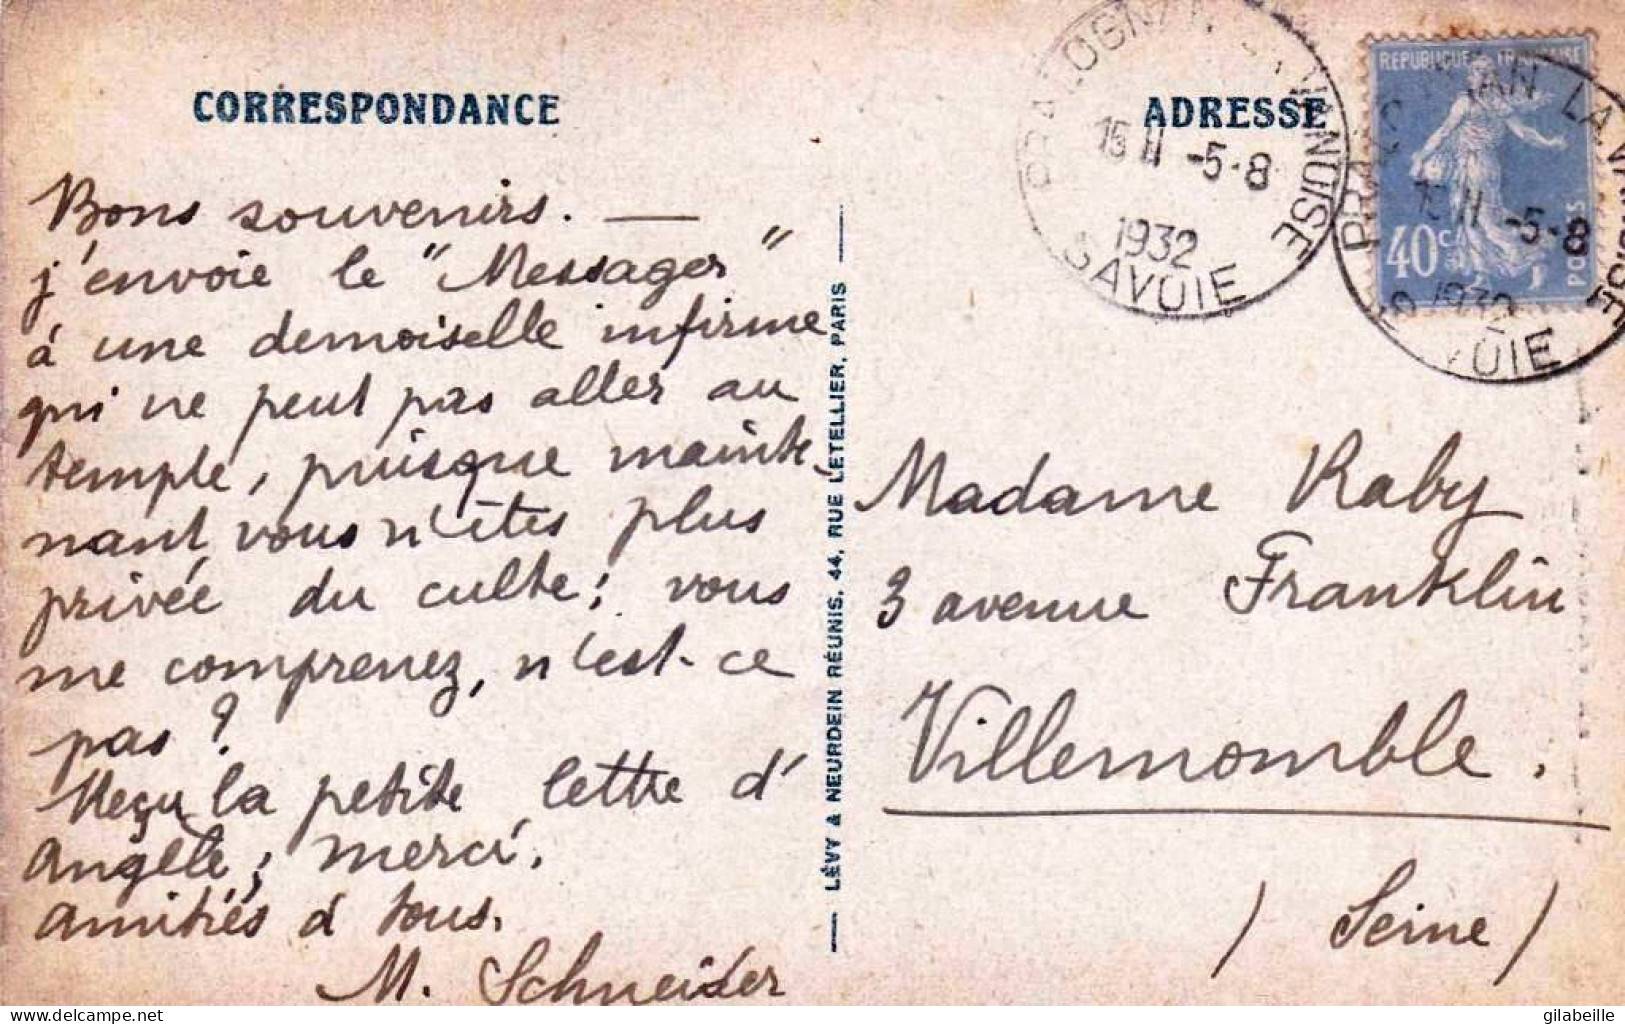 CORRESPONDANCE
Bons souvenirs. —
j'envoie le "Messager"
à une demoiselle infirme
qui ne peut pas aller au
temple, puisque mainte-
nant vous n'êtes plus
privée du culte; vous
me comprenez, n'est-ce
pas?
Reçu la petite lettre d'
Angèle; merci.
Amitiés à tous.
M. Schneider
LÉVY & NEURDEIN RÉUNIS, 44, RUE LETELLIER, PARIS
ADRESSE
PRALOGNAN LA VANOISE
15 II -5-8
1932
SAVOIE
REPUBLIQUE FRANÇAISE
40c
POSTES
LA VANOISE
15 II -5-8
1932
Madame Raby
3 avenue Franklin
Villemomble.
(Seine)
gilabeille